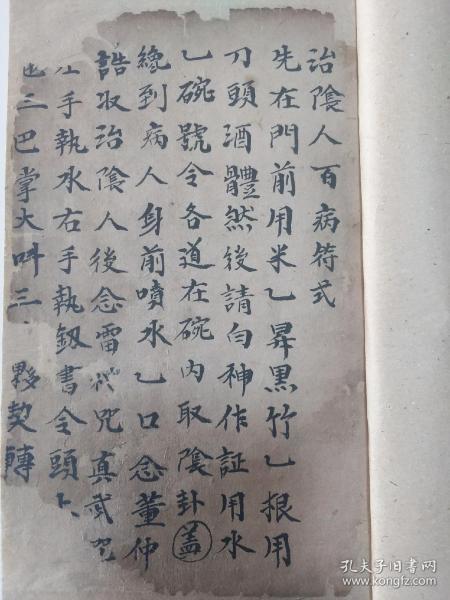 治陰人百病符式
先在門前用米乙昇黑竹乙根用
刀頭酒體然後請白神作証用水
乙碗號令各道在碗內取陰卦蓋
纔到病人身前噴水乙口念董仲
誥收治陰人後念雷 咒真武
左手執水右手執劔書令頭上
三巴掌大呌三 夥契轉
孔夫子旧书网
www.kongfz.com